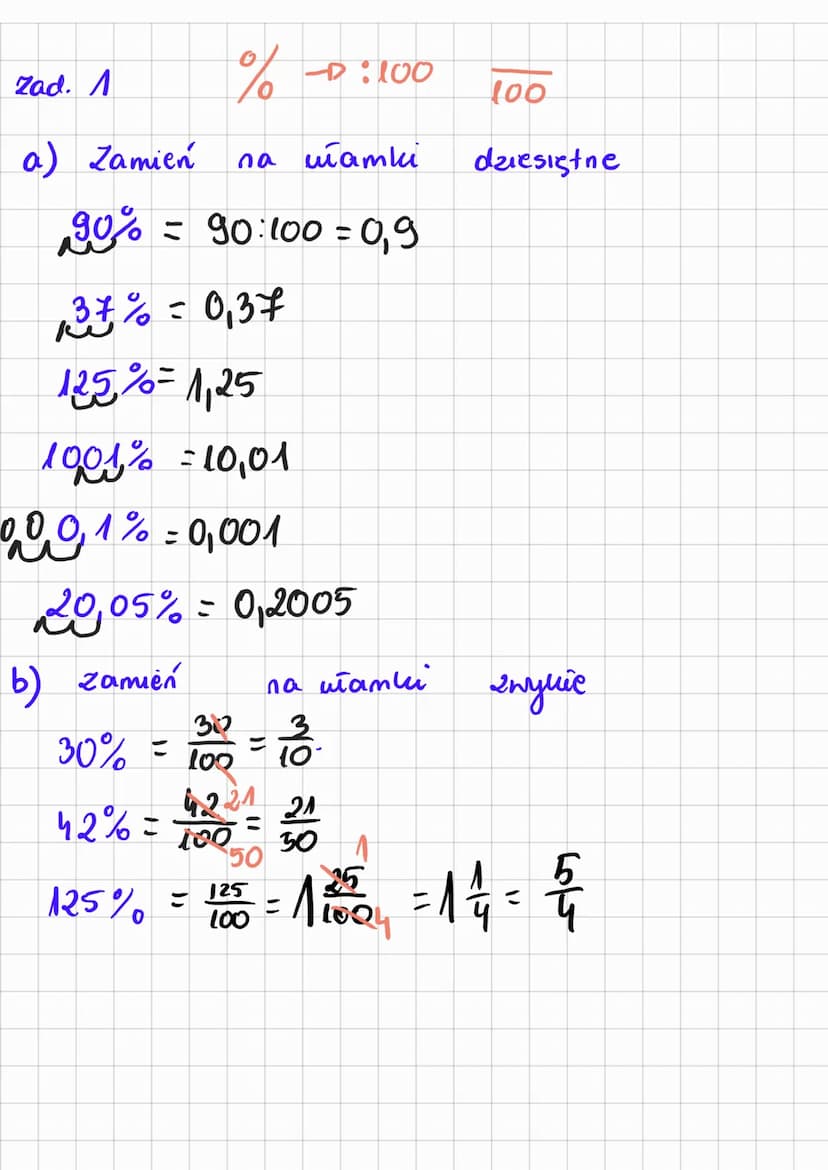 zad. 1 % → :100 /100
a) Zamień na ułamki dziesiętne
90% = 90:100 = 0,9
37% = 0,37
125,% = 1,25
1001,% = 10,01
0,0 0,1% = 0,001
20,05% = 0,2005
b) zamień na ułamki zwykłe
30% = 30/100 = 3/10
42% = 42/100 21 50 = 21/50
125% = 125/100 = 1 25/100 1 4 = 1 1/4 = 5/4